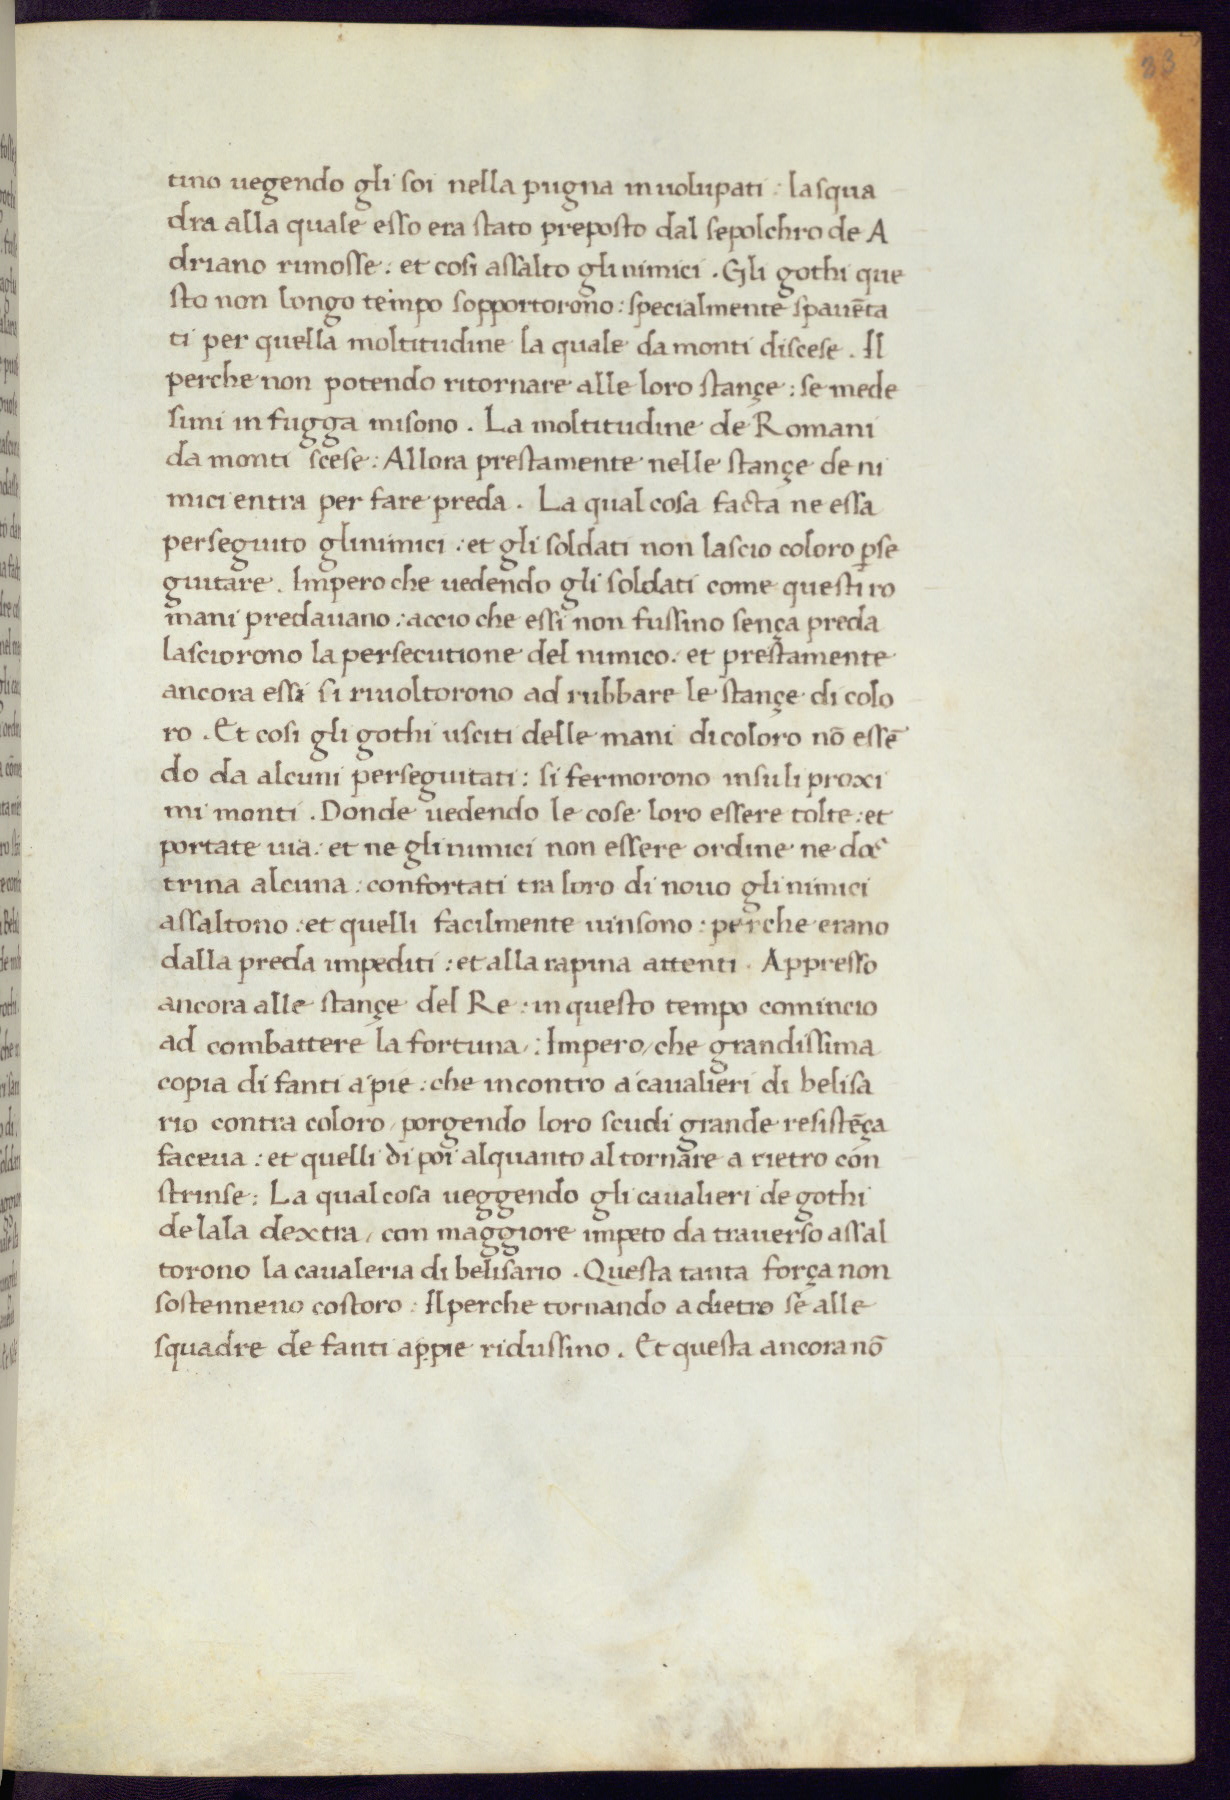 33
tino uegendo gli soi nella pugna inuolupati : la squa
dra alla quale esso era stato preposto dal sepolchro de A
driano rimosse : et cosi assalto gli nimici . Gli gothi que
sto non longo tempo sopportorono : specialmente spauẽta
ti per quella moltitudine la quale da monti discese . Il
perche non potendo ritornare alle loro stançe : se mede
simi in fugga misono . La moltitudine de Romani
da monti scese : Allora prestamente nelle stançe de ni
mici entra per fare preda . La qual cosa facta ne essa
perseguito gli nimici : et gli soldati non lascio coloro ꝑse
guitare . Impero che uedendo gli soldati come questi ro
mani predauano : accio che essi non fussino sença preda
lasciorono la persecutione del nimico . et prestamente
ancora essi si riuoltorono ad rubbare le stançe di colo
ro . Et cosi gli gothi usciti delle mani di coloro nõ essẽ
do da alcuni perseguitati : si fermorono in suli proxi
mi monti . Donde uedendo le cose loro essere tolte : et
portate uia : et ne gli nimici non essere ordine ne doc
trina alcuna : confortati tra loro di nouo gli nimici
assaltono : et quelli facilmente uinsono : perche erano
dalla preda impediti : et alla rapina attenti . Appresso
ancora alle stançe del Re : in questo tempo comincio
ad combattere la fortuna : Impero che grandissima
copia di fanti a pie : che incontro a caualieri di belisa
rio contra coloro / porgendo loro scudi grande resistẽça
faceua : et quelli di poi alquanto al tornare a rietro con
strinse : La qual cosa ueggendo gli caualieri de gothi
de lala dextra / con maggiore impeto da trauerso assal
torono la caualeria di belisario . Questa tanta força non
sostenneno costoro : Il perche tornando a dietro se alle
squadre de fanti appie ridussino . Et questa ancora nõ